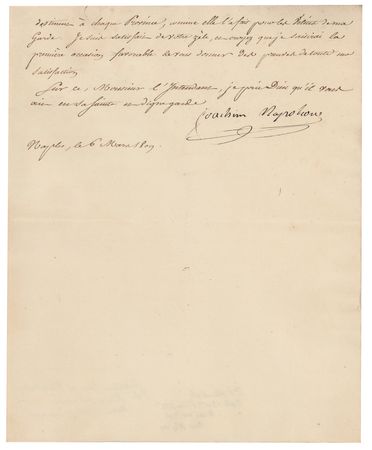 destinés à chaque Province, comme elle l'a fait pour les Vélites de ma
Garde. Je suis satisfait de votre zèle, et croyez que je saisirai la
première occasion favorable de vous donner des preuves de toute ma
satisfaction
Sur ce Monsieur l'Intendant, je prie Dieu qu'il vous
ait en sa sainte et digne garde
Joachim Napoléon
Naples, le 6 Mars 1809.